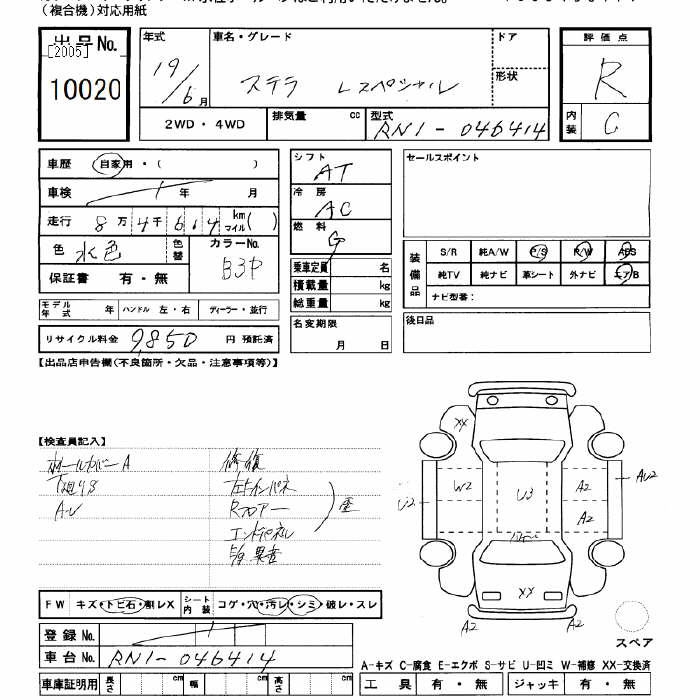 （複合機）対応用紙
出品No.
[2005]
10020
年式
19/6月
車名・グレード
ステラ Lスペシャル
ドア
形状
評価点
R
内装
C
2WD・4WD
排気量 cc
型式
RN1-046414
車歴 自家用・( )
車検 年 月
走行 8万4千6 1 4 km マイル( )
色 水色
色替
カラーNo.
B3P
保証書 有・無
シフト
AT
冷房
AC
燃料
G
乗車定員 名
積載量 kg
総重量 kg
セールスポイント
装備品
S/R 純A/W P/S P/W ABS
純TV 純ナビ 革シート 外ナビ エアB
ナビ型番：
モデル年式 年 ハンドル 左・右 ディーラー・並行
名変期限
月 日
後日品
リサイクル料金 9,850 円 預託済
【出品店申告欄(不良箇所・欠品・注意事項等)】
【検査員記入】
ホールカバーA 修復
下廻りS
A・U Rフロアー
エンドパネル
歪
XX
W2 U3 A2
A2
U2
AU2
XX
A2 A2
スペア
FW キズ・トビ石・割レX シート内装 コゲ・穴・汚レ・シミ・破レ・スレ
登録No.
車台No. RN1-046414
車庫証明用 長さ cm 幅 cm 高さ cm
A-キズ C-腐食 E-エクボ S-サビ U-凹ミ W-補修 XX-交換済
工具 有・無 ジャッキ 有・無